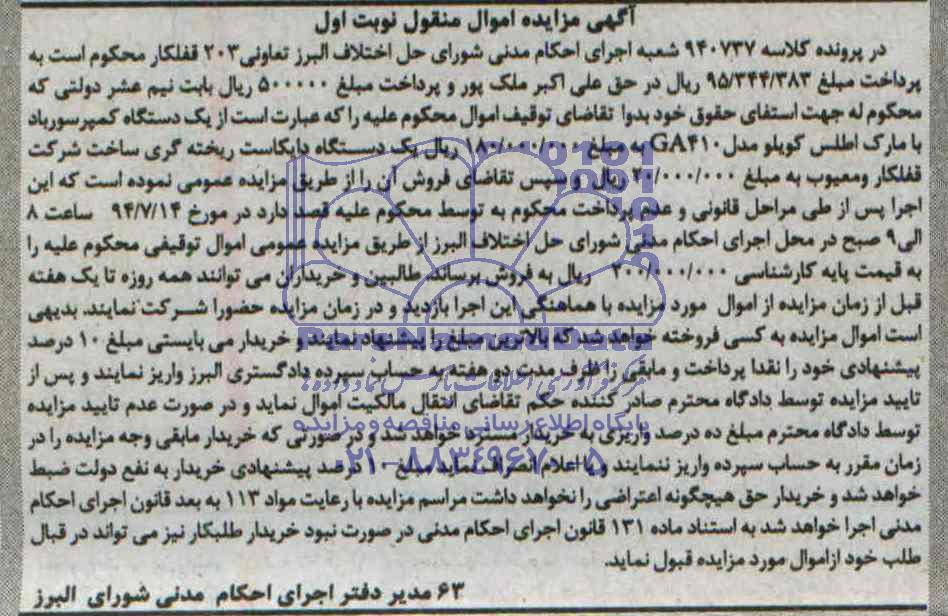 آگهی مزایده اموال منقول نوبت اول
در پرونده کلاسه ۹۴۰۷۳۷ شعبه اجرای احکام مدنی شورای حل اختلاف البرز تعاونی۲۰۳ قفلکار محکوم است به
پرداخت مبلغ ۹۵/۳۴۴/۳۸۳ ریال در حق علی اکبر ملک پور و پرداخت مبلغ ۵۰۰۰۰۰ ریال بابت نیم عشر دولتی که
محکوم له جهت استفای حقوق خود بدوا تقاضای توقیف اموال محکوم علیه را که عبارت است از یک دستگاه کمپرسورباد
با مارک اطلس کوپلو مدل GA۴۱۰ به مبلغ ۱۸۰/۰۰۰/۰۰۰ ریال یک دستگاه دایکاست ریخته گری ساخت شرکت
قفلکار ومعیوب به مبلغ ۲۰/۰۰۰/۰۰۰ ریال و سپس تقاضای فروش آن را از طریق مزایده عمومی نموده است که این
اجرا پس از طی مراحل قانونی و عدم پرداخت محکوم به توسط محکوم علیه قصد دارد در مورخ ۹۴/۷/۱۴ ساعت ۸
الی۹ صبح در محل اجرای احکام مدنی شورای حل اختلاف البرز از طریق مزایده عمومی اموال توقیفی محکوم علیه را
به قیمت پایه کارشناسی ۲۰۰/۰۰۰/۰۰۰ ریال به فروش برساند، طالبین و خریداران می توانند همه روزه تا یک هفته
قبل از زمان مزایده از اموال مورد مزایده با هماهنگی این اجرا بازدید و در زمان مزایده حضورا شرکت نمایند. بدیهی
است اموال مزایده به کسی فروخته خواهد شد که بالاترین مبلغ را پیشنهاد نمایند و خریدار می بایستی مبلغ ۱۰ درصد
پیشنهادی خود را نقدا پرداخت و مابقی را ظرف مدت دو هفته به حساب سپرده دادگستری البرز واریز نمایند و پس از
تایید مزایده توسط دادگاه محترم صادر کننده حکم تقاضای انتقال مالکیت اموال نماید و در صورت عدم تایید مزایده
پایگاه اطلاع رسانی مناقصه و مزایده
توسط دادگاه محترم مبلغ ده درصد واریزی به خریدار مسترد خواهد شد و در صورتی که خریدار مابقی وجه مزایده را در
۰۲۱-۸۸۳۴۹۶۷۰-۵
زمان مقرر به حساب سپرده واریز ننمایند و یا اعلام انصراف نماید مبلغ ۱۰ درصد پیشنهادی خریدار به نفع دولت ضبط
خواهد شد و خریدار حق هیچگونه اعتراضی را نخواهد داشت مراسم مزایده با رعایت مواد ۱۱۳ به بعد قانون اجرای احکام
مدنی اجرا خواهد شد به استناد ماده ۱۳۱ قانون اجرای احکام مدنی در صورت نبود خریدار طلبکار نیز می تواند در قبال
طلب خود ازاموال مورد مزایده قبول نماید.
۶۳ مدیر دفتر اجرای احکام مدنی شورای البرز